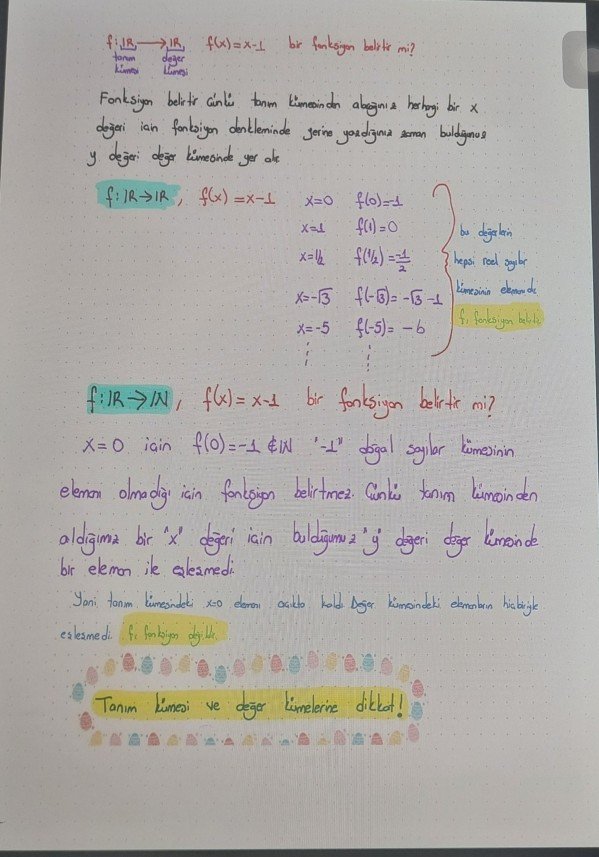 f: IR → IR f(x) = x-1 bir fonksiyon belirtir mi?
tanım kümesi değer kümesi
Fonksiyon belirtir Çünkü tanım kümesinden alacağınız herhangi bir x
değeri için fonksiyon denkleminde yerine yazdığınız zaman bulduğunuz
y değeri değer kümesinde yer alır.
f: IR → IR, f(x) = x-1 x=0 f(0)=-1
x=1 f(1)=0
bu değerlerin
x=1/2 f(1/2) = -1/2
hepsi reel sayılar
x=-√3 f(-√3) = -√3 -1
kümesinin elemanıdır.
x=-5 f(-5) = -6
f, fonksiyon belirtir.
f: IR → IN, f(x) = x-1 bir fonksiyon belirtir mi?
x=0 için f(0)=-1 ∉ IN "-1" doğal sayılar kümesinin
elemanı olmadığı için fonksiyon belirtmez. Çünkü tanım kümesinden
aldığımız bir "x" değeri için bulduğumuz "y" değeri değer kümesinde
bir eleman ile eşleşmedi.
Yani tanım kümesindeki x=0 elemanı açıkta kaldı. Değer kümesindeki elemanların hiçbiriyle
eşleşmedi. f, fonksiyon değildir.
Tanım kümesi ve değer kümelerine dikkat!